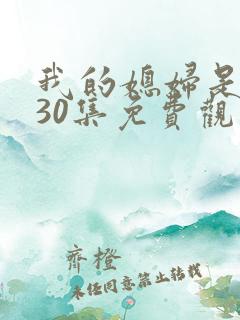 我的媳婦是
30集免費觀
齊橙
未经同意禁止转载